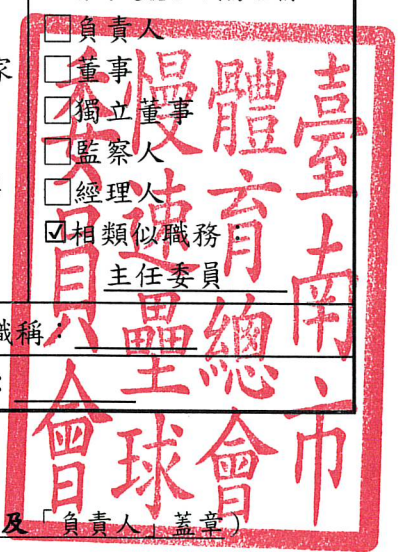 □負責人
家
□董事
□獨立董事
□監察人
□經理人
☑相類似職務：
主任委員
職稱：
：
及「負責人」蓋章）
臺南市
體育總會
慢速壘球
委員會